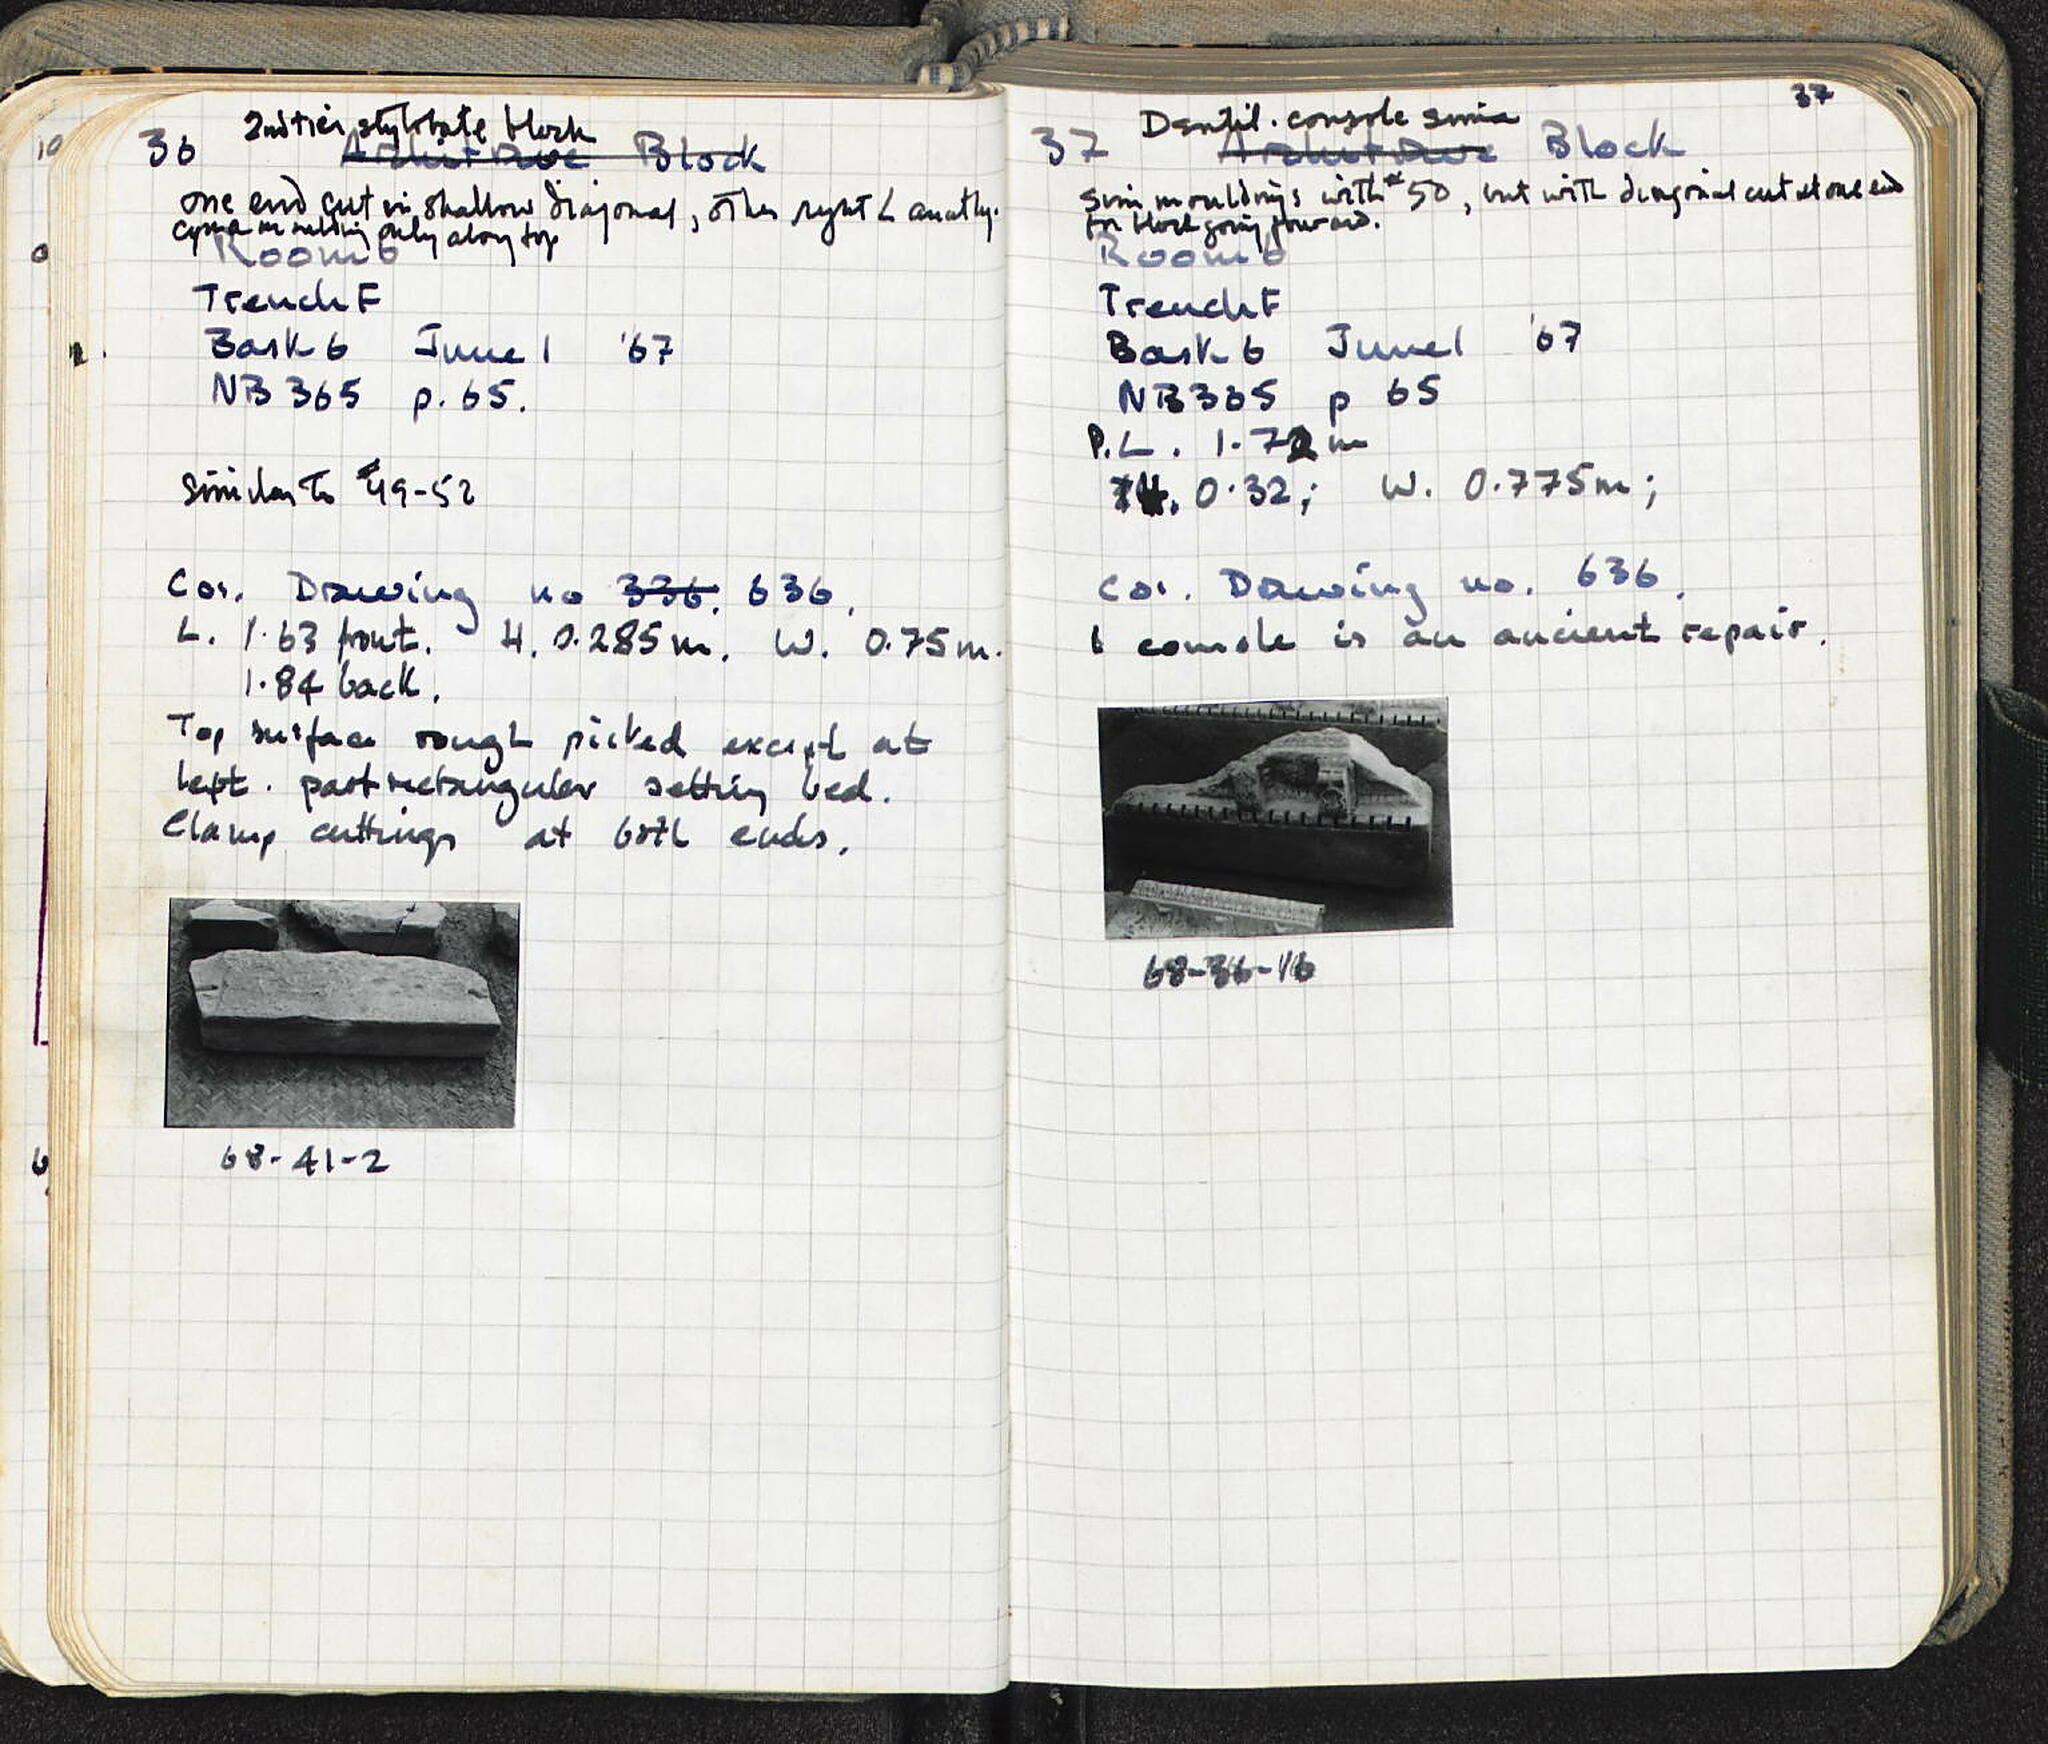 36 2nd tier stylobate block
Architrave Block
one end cut in shallow diagonal, other right L anathy.
cyma moulding only along top
Room 6
Trench F
Bask 6 June 1 '67
NB 365 p. 65.
similar to #49-52
Cor. Drawing no 336. 636.
L. 1.63 front. H. 0.285m. W. 0.75m.
1.84 back.
Top surface rough picked except at
left. part rectangular setting bed.
Clamp cuttings at both ends.
68-41-2
37
37 Dentil. console sima
Architrave Block
simi mouldings with #50, but with diagonal cut at one end
for block going forward.
Room 6
Trench F
Bask 6 June 1 '67
NB 365 p 65
P.L. 1.72 m
H. 0.32; W. 0.775m;
Cor. Drawing no. 636.
1 console is an ancient repair.
68-36-16